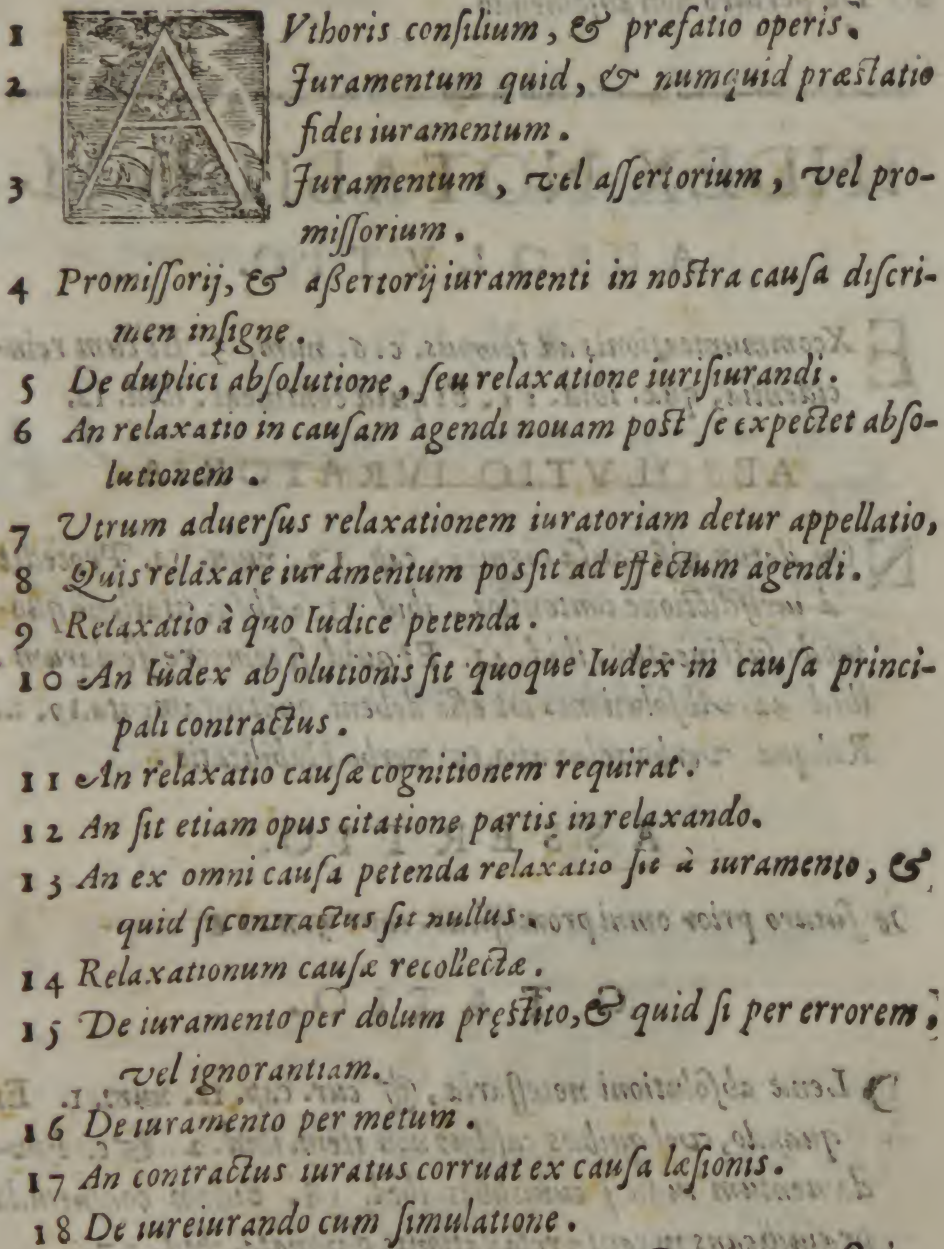 1 AVthoris conſilium, & præfatio operis.
2 Juramentum quid, & numquid præſtatio
fidei iuramentum.
3 Juramentum, vel aſſertorium, vel pro-
miſſorium.
4 Promiſſorij, & aſſertorij iuramenti in noſtra cauſa diſcri-
men inſigne.
5 De duplici abſolutione, ſeu relaxatione iuriſiurandi.
6 An relaxatio in cauſam agendi nouam poſt ſe expectet abſo-
lutionem.
7 Utrum aduerſus relaxationem iuratoriam detur appellatio,
8 Quis relaxare iuramentum poſſit ad effectum agendi.
9 Relaxatio à quo Iudice petenda.
10 An Iudex abſolutionis ſit quoque Iudex in cauſa princi-
pali contractus.
11 An relaxatio cauſæ cognitionem requirat.
12 An ſit etiam opus citatione partis in relaxando.
13 An ex omni cauſa petenda relaxatio ſit à iuramento, &
quid ſi contractus ſit nullus.
14 Relaxationum cauſæ recollectæ.
15 De iuramento per dolum pręſtito, & quid ſi per errorem,
vel ignorantiam.
16 De iuramento per metum.
17 An contractus iuratus corruat ex cauſa læſionis.
18 De iureiurando cum ſimulatione.